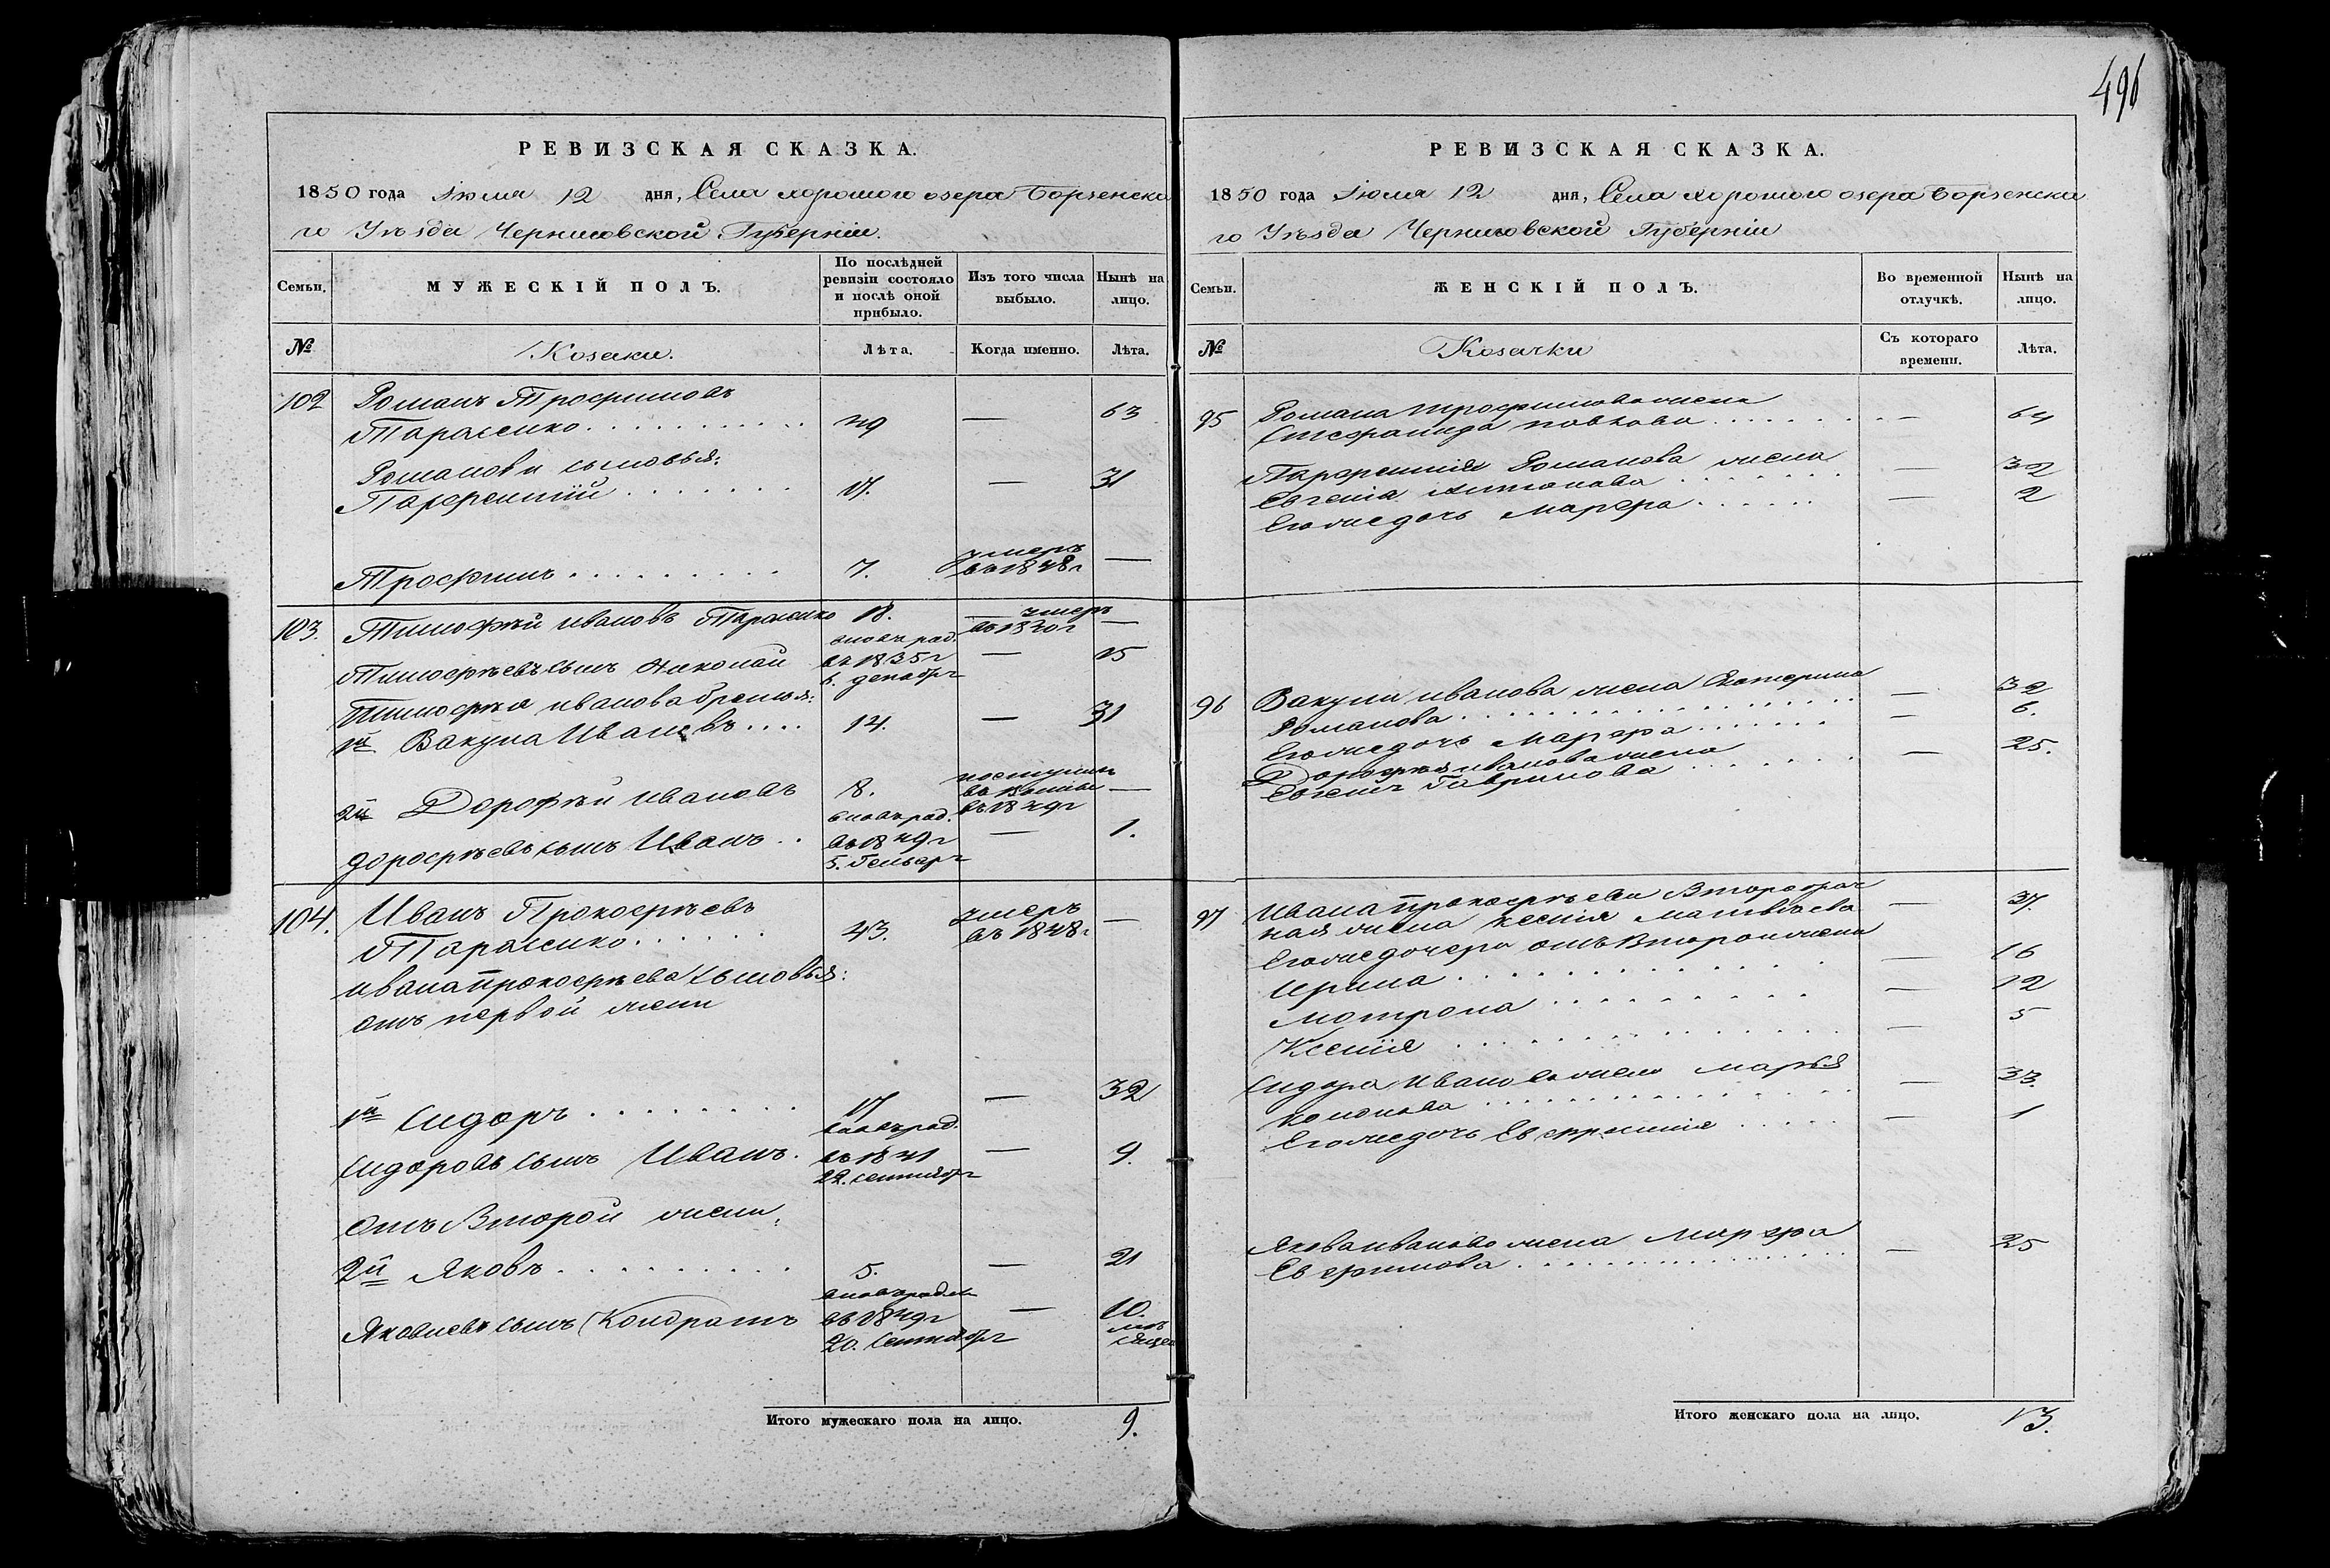 496
РЕВИЗСКАЯ СКАЗКА.
1850 года Іюля 12 дня, Села хорошого озера Борзенска
го Уѣзда Черниговской Губерніи.
Семьи.
МУЖЕСКІЙ ПОЛЪ.
По послѣдней
ревизіи состояло
и послѣ оной
прибыло.
Изъ того числа
выбыло.
Нынѣ на
лицо.
№
Козаки.
Лѣта.
Когда именно.
Лѣта.
102 Романъ Трофимовъ
Тарасенко 49 — 63
Романови сыновья:
Парфентій 17. — 31
Трофимъ 7. умеръ въ 1848г —
103. Тимофѣй ивановъ Тарасенко 18. умеръ —
въ 1840г
вновь рад.
Тимофѣевъ сынъ Николай въ 1835г — 15
6. декабря
Тимофѣя иванова братья:
1й Вакула Ивановъ 14. — 31
2й Дорофѣй ивановъ 18. поступилъ
въ 1849г —
вновь рад.
дорофѣевъ сынъ Иванъ въ 1849г — 1.
5. Генваря
104. Иванъ Прокофѣевъ
Тарасенко 43. умеръ въ 1848г —
ивана прокофѣева сыновья:
отъ первой жени
1й Сидоръ 17 — 32
вновь рад.
Сидоровъ сынъ Иванъ. въ 1841 — 9.
22. сентября
отъ Второй жени,
2й Яковъ 5. — 21
вновь рад.
Яковлевъ сынъ Кондратъ въ 1849г — 10.
20. Сентября мѣсяцей
Итого мужескаго пола на лицо. 9.
РЕВИЗСКАЯ СКАЗКА.
1850 года Іюля 12 дня, Села хорошого озера Борзенска
го Уѣзда Черниговской Губерніи
Семьи.
ЖЕНСКІЙ ПОЛЪ.
Во временной
отлучкѣ.
Нынѣ на
лицо.
№
Козачки
Съ котораго
времени.
Лѣта.
95 Романа трофимова жена
Стефанида павлова — 64
Парфентія Романова жена
Евгенія Антонова — 32
Его же дочь Марфа — 2
96 Вакули иванова жена Екатерина
Романова — 32
Его же дочь Марфа — 6.
Дорофѣя иванова жена
Гаврилова — 25.
97 Ивана прокофѣева Второбрач
ная жена ксенія Матвѣева — 37.
Его же дочери отъ Второй жени
Ирина — 16
Мотрона — 12
Ксенія — 5
Сидора Иванова жена марья
кононова — 33.
Его же дочь Евфросинія — 1
Якова иванова жена Марфа
Евфимова — 25
Итого женскаго пола на лицо. 13.